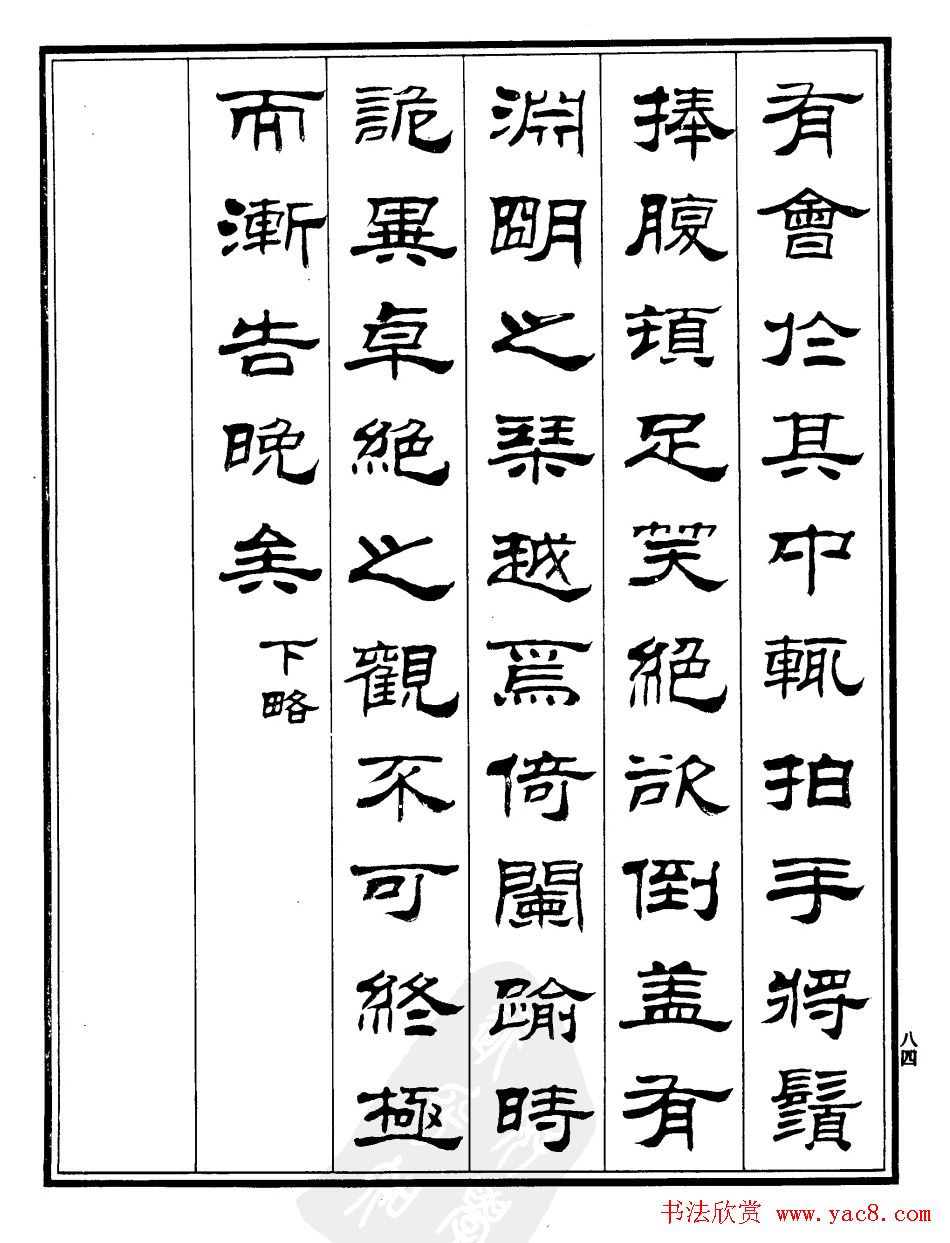 有會於其中輒拍手捋鬚
捧腹頓足笑絕欲倒蓋有
淵明之琹越焉倚闌踰時
詭異卓絕之觀不可終極
而漸告晚矣
下略
八四
书法欣赏 www.yac8.com